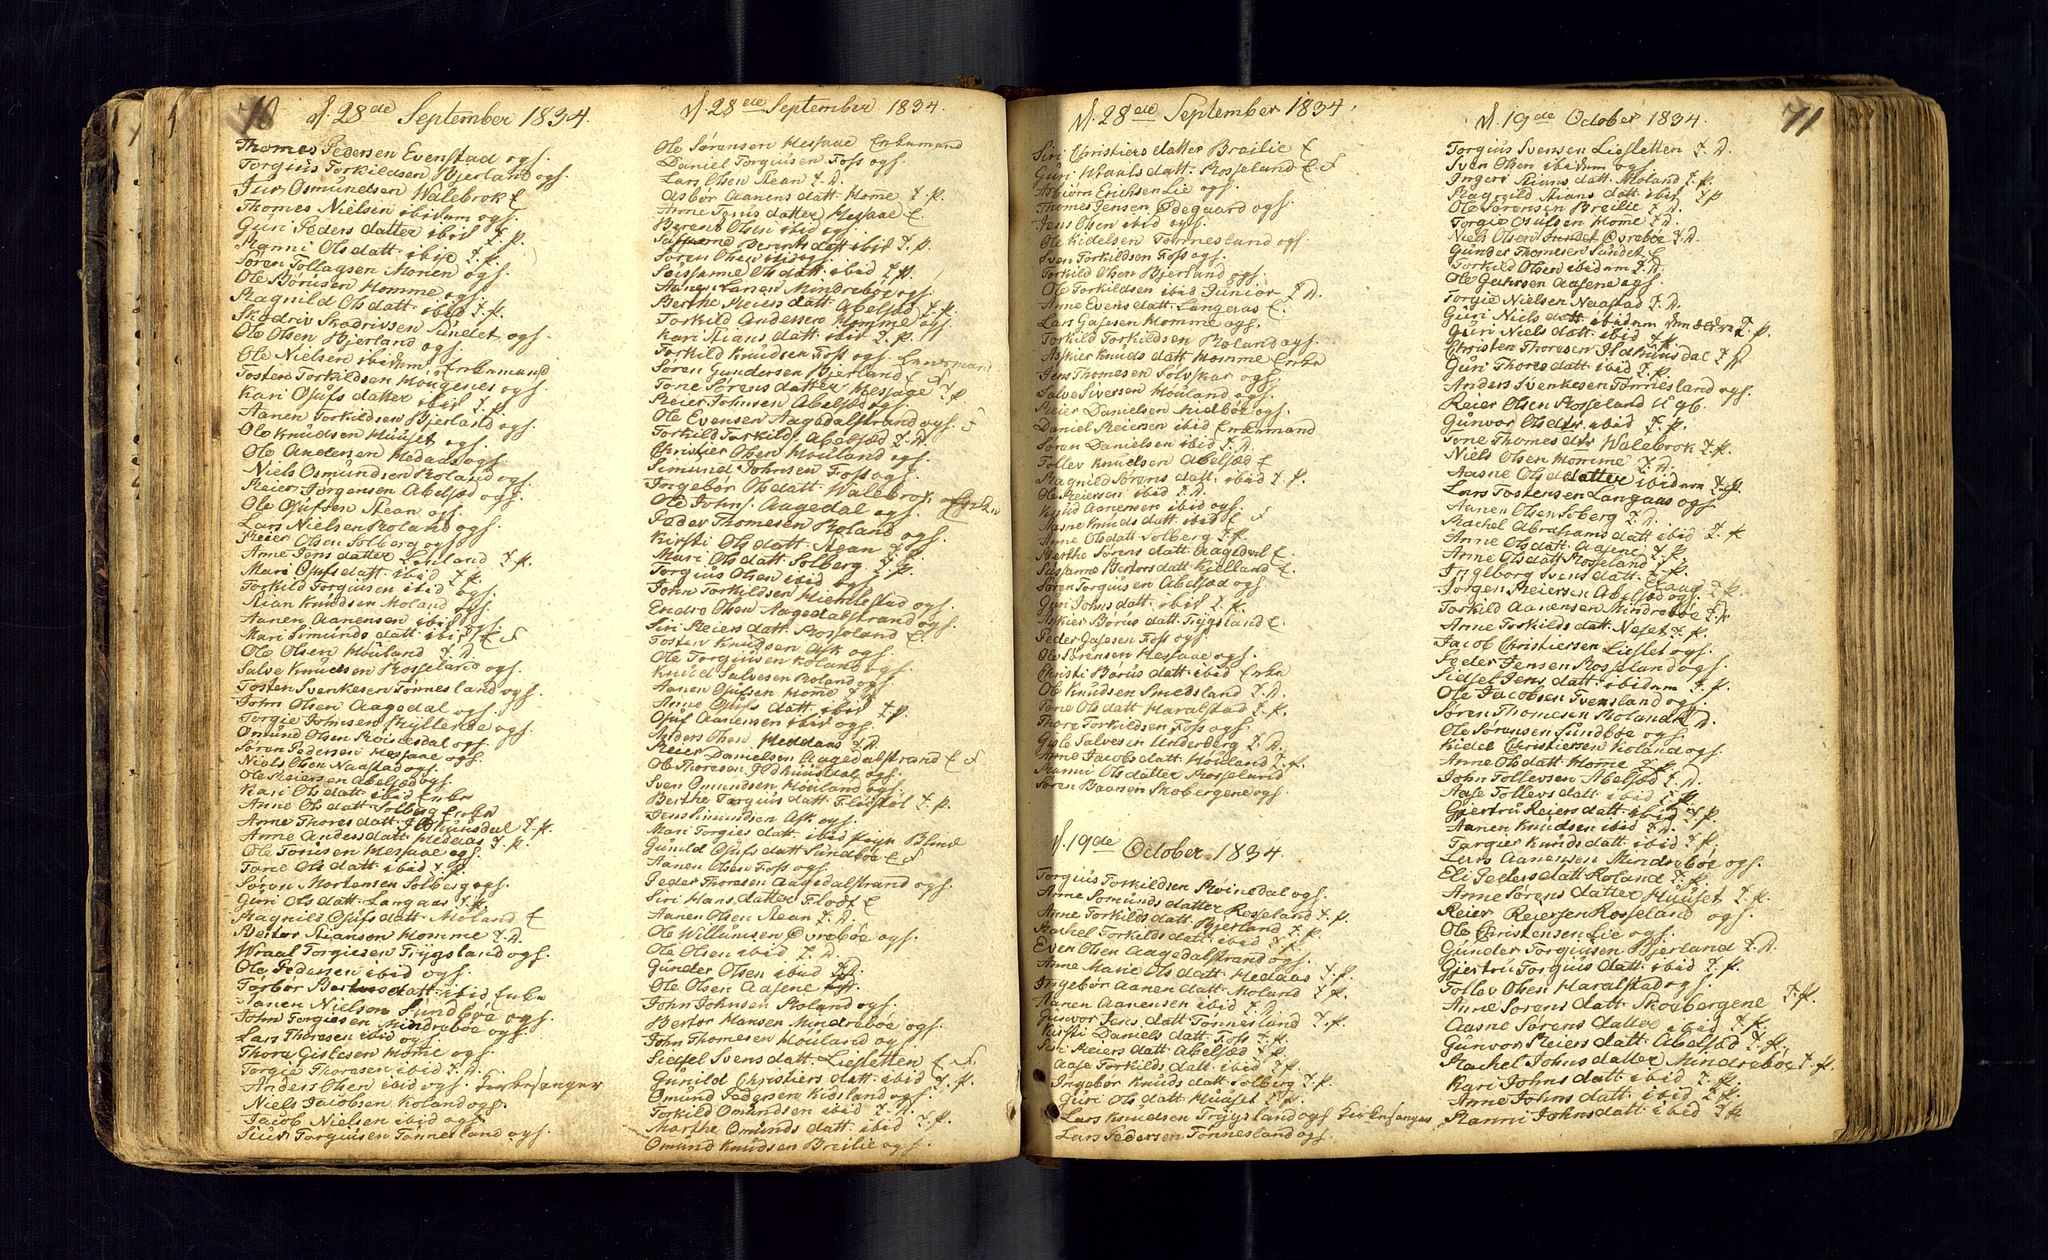 70
d. 28de September 1834.
Thomes Pedersen Evenstad ogh.
Torgius Torkildsen Bjerland ogh.
Jur Osmundsen Walebrok E
Thomes Nielsen ibidum ogh.
Guri Peders datter ibid T. P.
Ranni Ols datt. ibid T. P.
Søren Tollagsen Monen ogh.
Ole Børusen Homme ogh.
Ragnild Ols datt. ibid T. P.
Skadriv Skadrivsen Sundet ogh.
Ole Olsen Bjerland ogh.
Ole Nielsen ibidum Enkemand
Tosten Torkildsen Hougenes ogh.
Kari Osufs datter ibid T. P.
Aanen Torkildsen Bjerland ogh.
Ole Knudsen Huuset ogh.
Ole Andersen Hedaas ogh.
Niels Osmundsen Roland ogh.
Reier Jørgensen Abelsæd ogh.
Ole Osufsen Stean ogh.
Lars Nielsen Roland ogh.
Reier Olsen Solberg ogh.
Anne Jens datter Lonland T. P.
Mari Osufs datt. ibid T. P.
Torkild Torgiusen ibid ogh.
Stian Knudsen Moland ogh.
Aanen Aanensen ibid ogh.
Mari Simunds datt. ibid E S
Ole Olsen Houland T. D.
Salve Knudsen Rosseland ogh.
Tosten Svenkesen Tønnesland ogh.
John Olsen Aagedal ogh.
Torgie Johnsen Kyllende ogh.
Omund Olsen Røinesdal ogh.
Søren Pedersen Messaae ogh.
Niels Olsen Naastad ogh.
Ole Reiersen Abelsæd ogh.
Kari Ols datt. ibid Enke
Anne Ols datt. Solberg Enke
Anne Thores datt. Idkuusdal T. P.
Anne Anders datt. Hedaas T. P.
Ole Tonusen Messaae ogh.
Tone Ols datt. ibid T. P.
Søren Mortensen Solberg ogh.
Guri Ols datt. Langaas T. P.
Magnild Osufs datt. Moland E
Bertor Stiansen Homme T. D.
Wraal Torgiesen Trygsland ogh.
Ole Pedersen ibid ogh.
Torbor Bertors datt. ibid Enke
Aanen Nielsen Sundbøe ogh.
John Torgiesen Mindrebøe ogh.
Lars Thoresen ibid ogh.
Thore Gislesen Home ogh.
Torgie Thoresen ibid T. D.
Anders Olsen ibid ogh. Kirkesanger
Niels Jacobsen Roland ogh.
Jacob Nielsen ibid ogh.
Siur Torguisen Tønnesland ogh.
d. 28de September 1834.
Ole Sørensen Messaae Enkemand
Daniel Torguisen Foss ogh.
Lars Olsen Stean T. D.
Asbør Aanens datt. Home T. P.
Anne Tonus datter Messaae E
Berent Olsen ibid ogh.
Sussanne Berents datt. ibid T. P.
Søren Olsen ibid ogh.
Sussanne Ols datt. ibid T. P.
Aanen Larsen Mindrebøe ogh.
Berthe Reiers datt. Abelsæd T. P.
Torkild Andersen Homme ogh.
Kari Stians datt. ibid T. P.
Torkild Knudsen Foss ogh. Enkemand
Søren Gundersen Bjerland E S
Tone Sørens datter Message T. P.
Reier Johnsen Abelsæd ogh.
Ole Evensen Aagedalstrand ogh. S
Torkild Torkilds. Abelsæd T. D.
Christier Olsen Houland ogh.
Simund Johnsen Foss ogh.
Ingebør Ols datt. Walebrok
Ole Johns. Aagedal ogh.
Peder Thomesen Roland ogh.
Kirsti Ols datt. Stean T. P.
Mari Ols datt. Solberg T. P.
Torgius Olsen ibid ogh.
John Torkildsen Hiemlestad ogh.
Endre Olsen Aagedalstrand ogh.
Siri Reiers datt. Rosseland E
Tosten Knudsen Ask ogh.
Ole Torguisen Roland ogh.
Knud Salvesen Roland ogh.
Aanen Osufsen Home T. D.
Anne Osufs datt. ibid T. P.
Osuf Aanensen ibid ogh.
Anders Olsen Heddaas T. D.
Reier Danielsen Aagedalstrand E S
Ole Thoresen Idkuusdal ogh.
Sven Omundsen Houland ogh.
Berthe Torgius datt. Flottstøl T. P.
Jens Simundsen Ask ogh.
Mari Torgies datt. ibid Pign Blind
Gunild Osufs datt. Sundbøe E S
Aanen Olsen Foss ogh.
Peder Thoresen Aagedalstrand ogh.
Siri Hans datter Flodt E
Aanen Olsen Stean T. D.
Ole Willumsen Øvrebøe ogh.
Ole Olsen ibid T. D.
Gunder Olsen ibid T. D.
Ole Olsen Aasene
John Johnsen Roland ogh.
Bertor Hansen Mindrebøe ogh.
John Thomesen Houland ogh.
Sidsel Svens datt. Liesletten E S
Gunild Christiers datt. ibid T. P.
Omund Pedersen Kidsland ogh.
Torkild Omundsen ibid T. D.
Marthe Omunds datt. ibid T. P.
Omund Knudsen Breilie ogh.
71
d. 28de September 1834.
Siri Christiers datter Breilie E
Guri Wraals datt. Rosseland E S
Asbiørn Erichsen Lie ogh.
Thomes Jensen Ødegaard ogh.
Jens Olsen ibid ogh.
Ole Kidelsen Tønnesland ogh.
Sven Torkildsen Foss ogh.
Torkild Olsen Bjerland ogh.
Ole Torkildsen ibid Junior T. D.
Anne Evens datt. Langeraas E.
Lars Gasesen Homme ogh.
Torkild Torkildsen Roland ogh.
Askier Knuds datt. Homme Enke
Jens Thomesen Solvskar ogh.
Salve Siversen Houland ogh.
Reier Danielsen Midbøe ogh.
Daniel Reiersen ibid Enkemand
Søren Danielsen ibid T. D.
Tollev Knudsen Abelsæd E
Ragnild Sørens datt. ibid T. P.
Ole Reiersen ibid T. D.
Knud Aanensen ibid ogh.
Aasne Knuds datt. ibid E S
Anne Ols datt. Solberg T. P.
Berthe Sørens datt. Aagedal E.
Sussanne Bertors datt. Kjelland E.
Søren Torguisen Abelsæd ogh.
Guri Johns datt. ibid T. P.
Askier Børus datt. Trygsland E.
Peder Gasesen Foss ogh.
Ole Sørensen Messaae ogh.
Christi Børus datt. ibid Enke
Ole Knudsen Smedsland T. D.
Tone Ols datt. Haralstad T. P.
Thore Torkildsen Foss ogh.
Gisle Salvesen Underberg T. D.
Anne Jacobs datt. Houland T. P.
Ranni Ols datter Rosseland
Søren Baarsen Skobergene ogh.
d. 19de October 1834.
Torguis Torkildsen Røinesdal ogh.
Anne Somunds datter Rosseland T. P.
Anne Torkilds datt. Bjerland T. P.
Rachel Torkilds datt. ibid T. P.
Even Olsen Aagedalstrand ogh.
Anne Marie Ols datt. Hedaas T. P.
Ingebør Aanen datt. Moland T. P.
Aanen Aanensen ibid T. D.
Gunvor Jens datt. Tønnesland T. P.
Kirsti Daniels datt. Foss T. P.
Siri Reiers datt. Abelsæd T. P.
Aase Torkilds datt. ibid T. P.
Ingebør Knuds datt. Solberg T. P.
Guri Ols datt. Huuset T. P.
Lars Knudsen Trygsland ogh Kirkesanger
Lars Pedersen Tønnesland ogh.
d. 19de October 1834.
Torguis Svensen Liesletten T. D.
Sven Olsen ibidum ogh.
Ingeri Stians datt. Moland T. P.
Ragnild Stians datt. ibid T. P
Ole Sørensen Breilie T. D.
Torgie Osulfsen Home T. D.
Niels Olsen Øvrebøe T. D.
Gunder Thomesen Sundet E
Torkild Olsen ibidum T. D.
Ole Guhrsen Aasene ogh.
Torgie Nielsen Naastad T. D.
Guri Niels datt. ibidum den ældre T. P.
Guri Niels datt. ibid T. P.
Christen Thoresen Idkuusdal T. D.
Guri Thores datt. ibid T. P.
Anders Svenkesen Tønnesland ogh.
Reier Olsen Rosseland U gb.
Gunvor Ols dtr. ibid T. P.
Tone Thomes dtr Walebrok T. P.
Niels Olsen Homme T. D.
Aasne Ols datter ibidum T. P.
Lars Tostensen Langaas ogh
Aanen Olsen Soberg T. D.
Rachel Abrahams datt. ibid T. P.
Anne Ols datt. Aasene T. P.
Anne Ols datt. Rosseland T. P.
Ingeborg Svens datt. Haag T. P.
Jørgen Reiersen Abelsæd ogh.
Torkild Aanensen Mindrebøe T. D.
Anne Torkilds datt. Neset T. P.
Jacob Christiersen Lieslet ogh.
Peder Jensen Rosseland ogh.
Sidsel Jens datt. ibidum T. P.
Ole Jacobsen Ivensland ogh.
Søren Thomesen Roland T. D.
Ole Sørensen Sundbøe ogh.
Kidel Christiersen Roland ogh.
Anne Ols datt. Home T. P.
John Tollevsen Abelsæd T. D.
Aase Tollevs datt. ibid T. P.
Gjertru Reiers datt. ibid T. P.
Aanen Knudsen ibid T. D.
Targier Knuds datt. ibid T. P.
Lars Aanensen Mindrebøe ogh.
Eli Peders datt. Roland T. P.
Anne Sørens datter Huuset T. P.
Reier Reiersen Rosseland ogh.
Ole Christensen Lie ogh.
Gunder Torguisen Bjerland T. D.
Gjertru Torguis datt. ibid T. P.
Tollev Olsen Haralstad ogh.
Anne Sørens datt. Skobergene T. P.
Aasne Sørens datter ibid T. P.
Gunvor Reiers datt. Abelsæd T. P.
Rachel Johns datter Mindrebøe T. P.
Kari Johns datt. ibid T. P.
Anne Johns datt. ibid T. P.
Ranni Johns datt. ibid T. P.